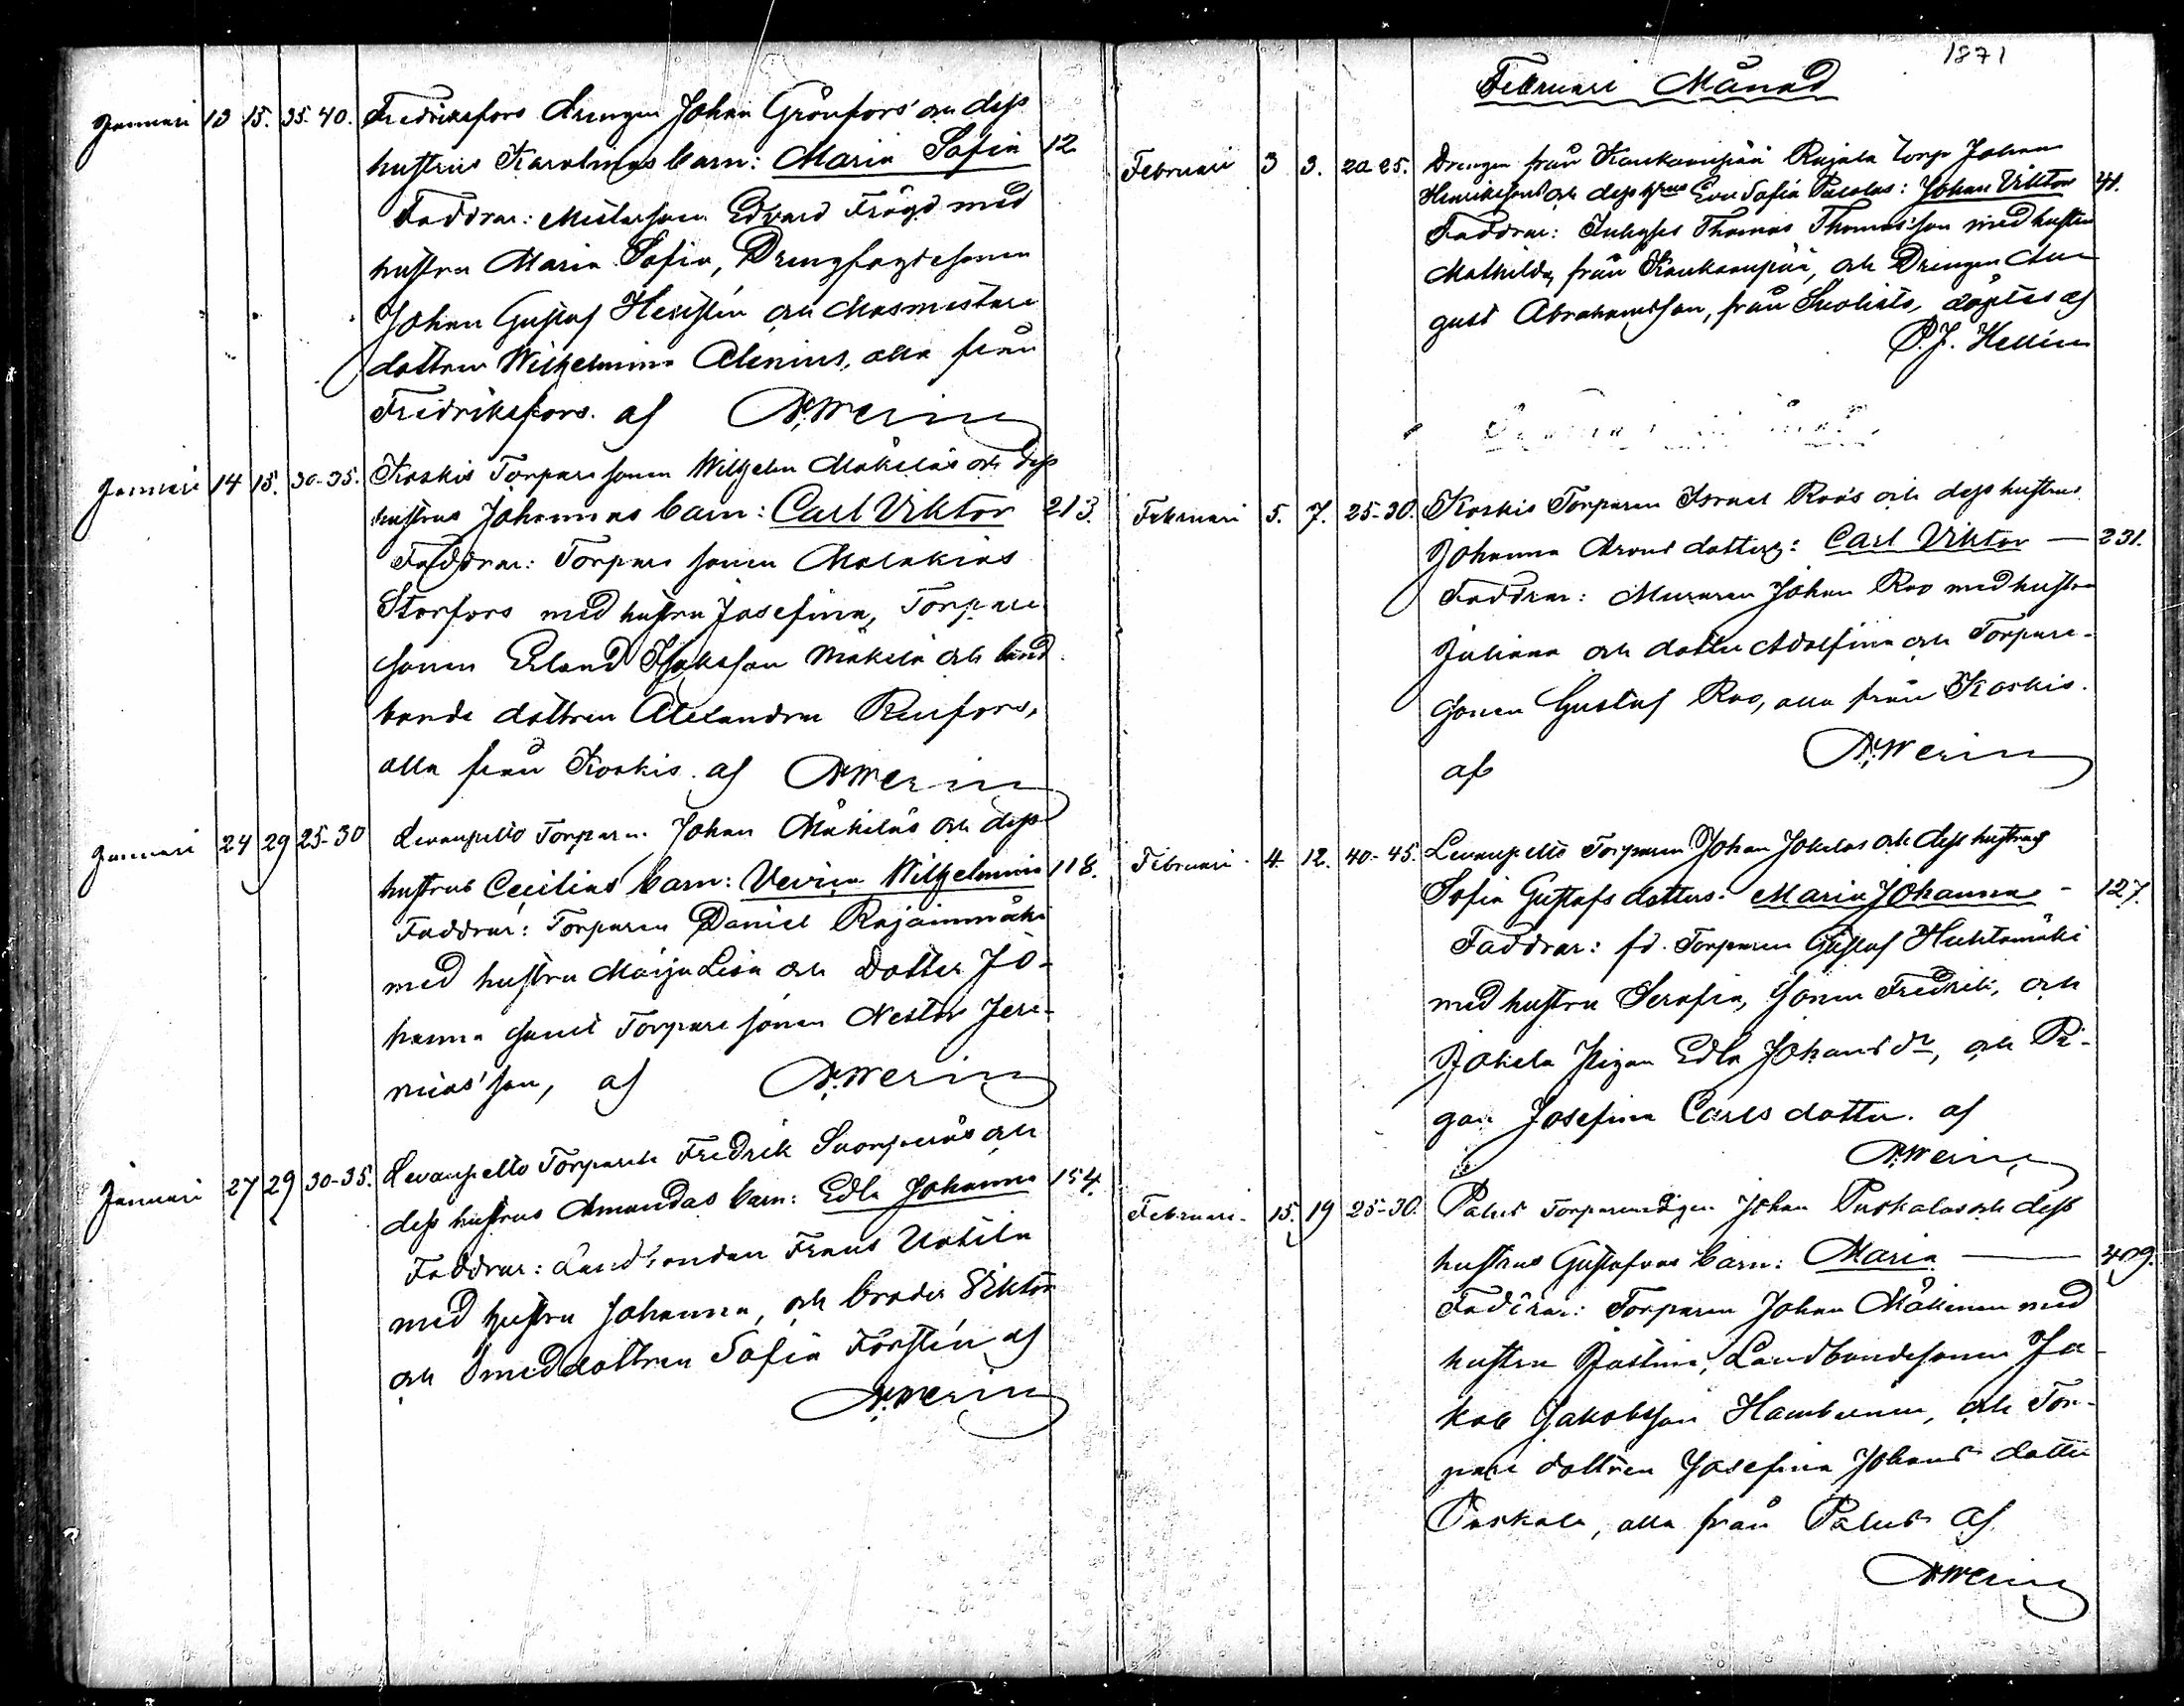 Januari 13 15. 35-40. Fredriksfors Drengen Johan Grönfors' och dess
hustrus Karolinas barn: Maria Sofia 12
Faddrar: Edvard Frögd med
hustru Maria Sofia,
Johan Gustaf och Masmästare
dottren Wilhelmina Alenius, alla från
Fredriksfors. af
Januari 14 15. 30-35. Koskis Torpare sonen Wilhelm Mäkiläs och dess
hustrus Johannas barn: Carl Viktor 213.
Faddrar: Torpare sonen Malakias
Storfors med hustru Josefina, Torpare
sonen Erland Mäkilä och land
bonde dottren Alexandra Renfors,
alla från Koskis. af
Januari 24 29 25-30 Levanpelto Torparen Johan Mäkiläs och dess
hustrus Cecilias barn: Wilhelmina 118.
Faddrar: Torparen Daniel Rajainmäki
med hustru Maija Lisa och dotter Jo-
hanna samt Torpare sonen Nestor Jere-
mias'son, af
Januari 27 29 30-35. Levanpelto Torparen Fredrik och
dess hustrus Amandas barn: Edla Johanna 154.
Faddrar: Landbonden Frans Uotila
med hustru Johanna, och broder Viktor
och Smeddottren Sofia Forstén af
1871
Februari Månad
Februari 3 3. 20-25. Drengen från Kaukaanpää Rajala torp Johan
Henrikssons och dess Eva Sofia : Johan Viktor 41.
Faddrar: Inhyses Thomas Thomas'son med hustru
Mathilda, från Kaukaanpää, och Drengen Au-
gust Abrahamsson, från Suolisto, döptes af
P.J. Hellén
Februari 5. 7. 25-30. Koskis Torparen Israel Roo's och dess hustrus
Johanna Arons dotters: Carl Viktor — 231.
Faddrar: Muraren Johan Roo med hustru
Juliana och dotter Adolfina och Torpare-
sonen Gustaf Roo, alla från Koskis.
af
Februari 4. 12. 40-45. Levanpelto Torparen Johan Jokelas och dess hustrus
Sofia Gustafs dotters: Maria Johanna - 127
Faddrar: fd. Torparen Gustaf Huhtamäki
med hustru Serafia, sonen Fredrik, och
Jokela Pigan Edla Johansdr, och Pi-
gan Josefina Carls dotter. af
Februari 15. 19 25-30. Palus Johan Paskalas och dess
hustrus Gustafvas barn: Maria — 409.
Faddrar: Torparen Johan Mäkinen med
hustru Justina, Landbondesonen Ja-
kob Jakobsson och Tor-
pare dottren Josefina Johans dotter
Paskala, alla från Palus af